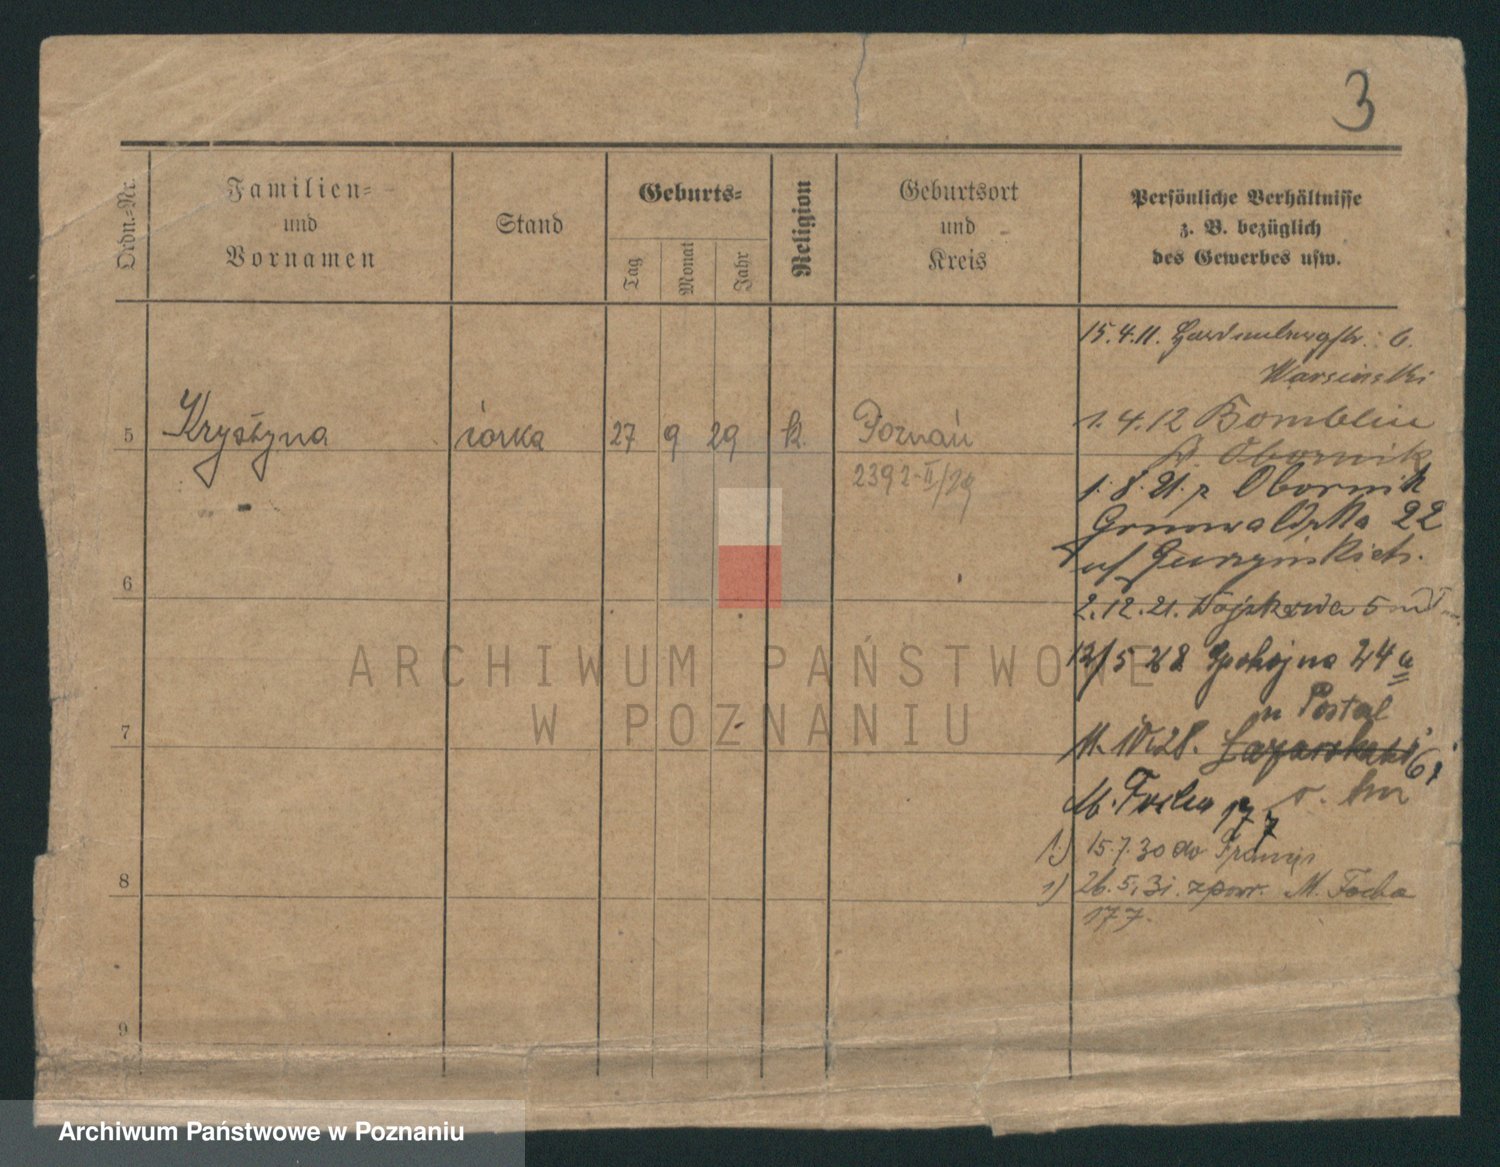 3
Ordn.-Nr.
Familien-
und
Vornamen
Stand
Geburts-
Tag
Monat
Jahr
Religion
Geburtsort
und
Kreis
Persönliche Verhältnisse
z. B. bezüglich
des Gewerbes usw.
15.4.11. Hardenbergstr. 6.
Warsinski
1.4.12 Bomblin
Kr. Obornik
5 Krystyna córka 27 9 29 k. Poznań
2392-II/29
1.8.21. z Obornik
Grunwaldzka 22
6
2.12.21. Wojskowa 5
12/5 28 Spokojna 24a
7
M. Focha 177
1) 15.7.30 do Francji
8
1) 26.5.31. zpowr. M. Focha
177.
9
ARCHIWUM PAŃSTWOWE
W POZNANIU
Archiwum Państwowe w Poznaniu